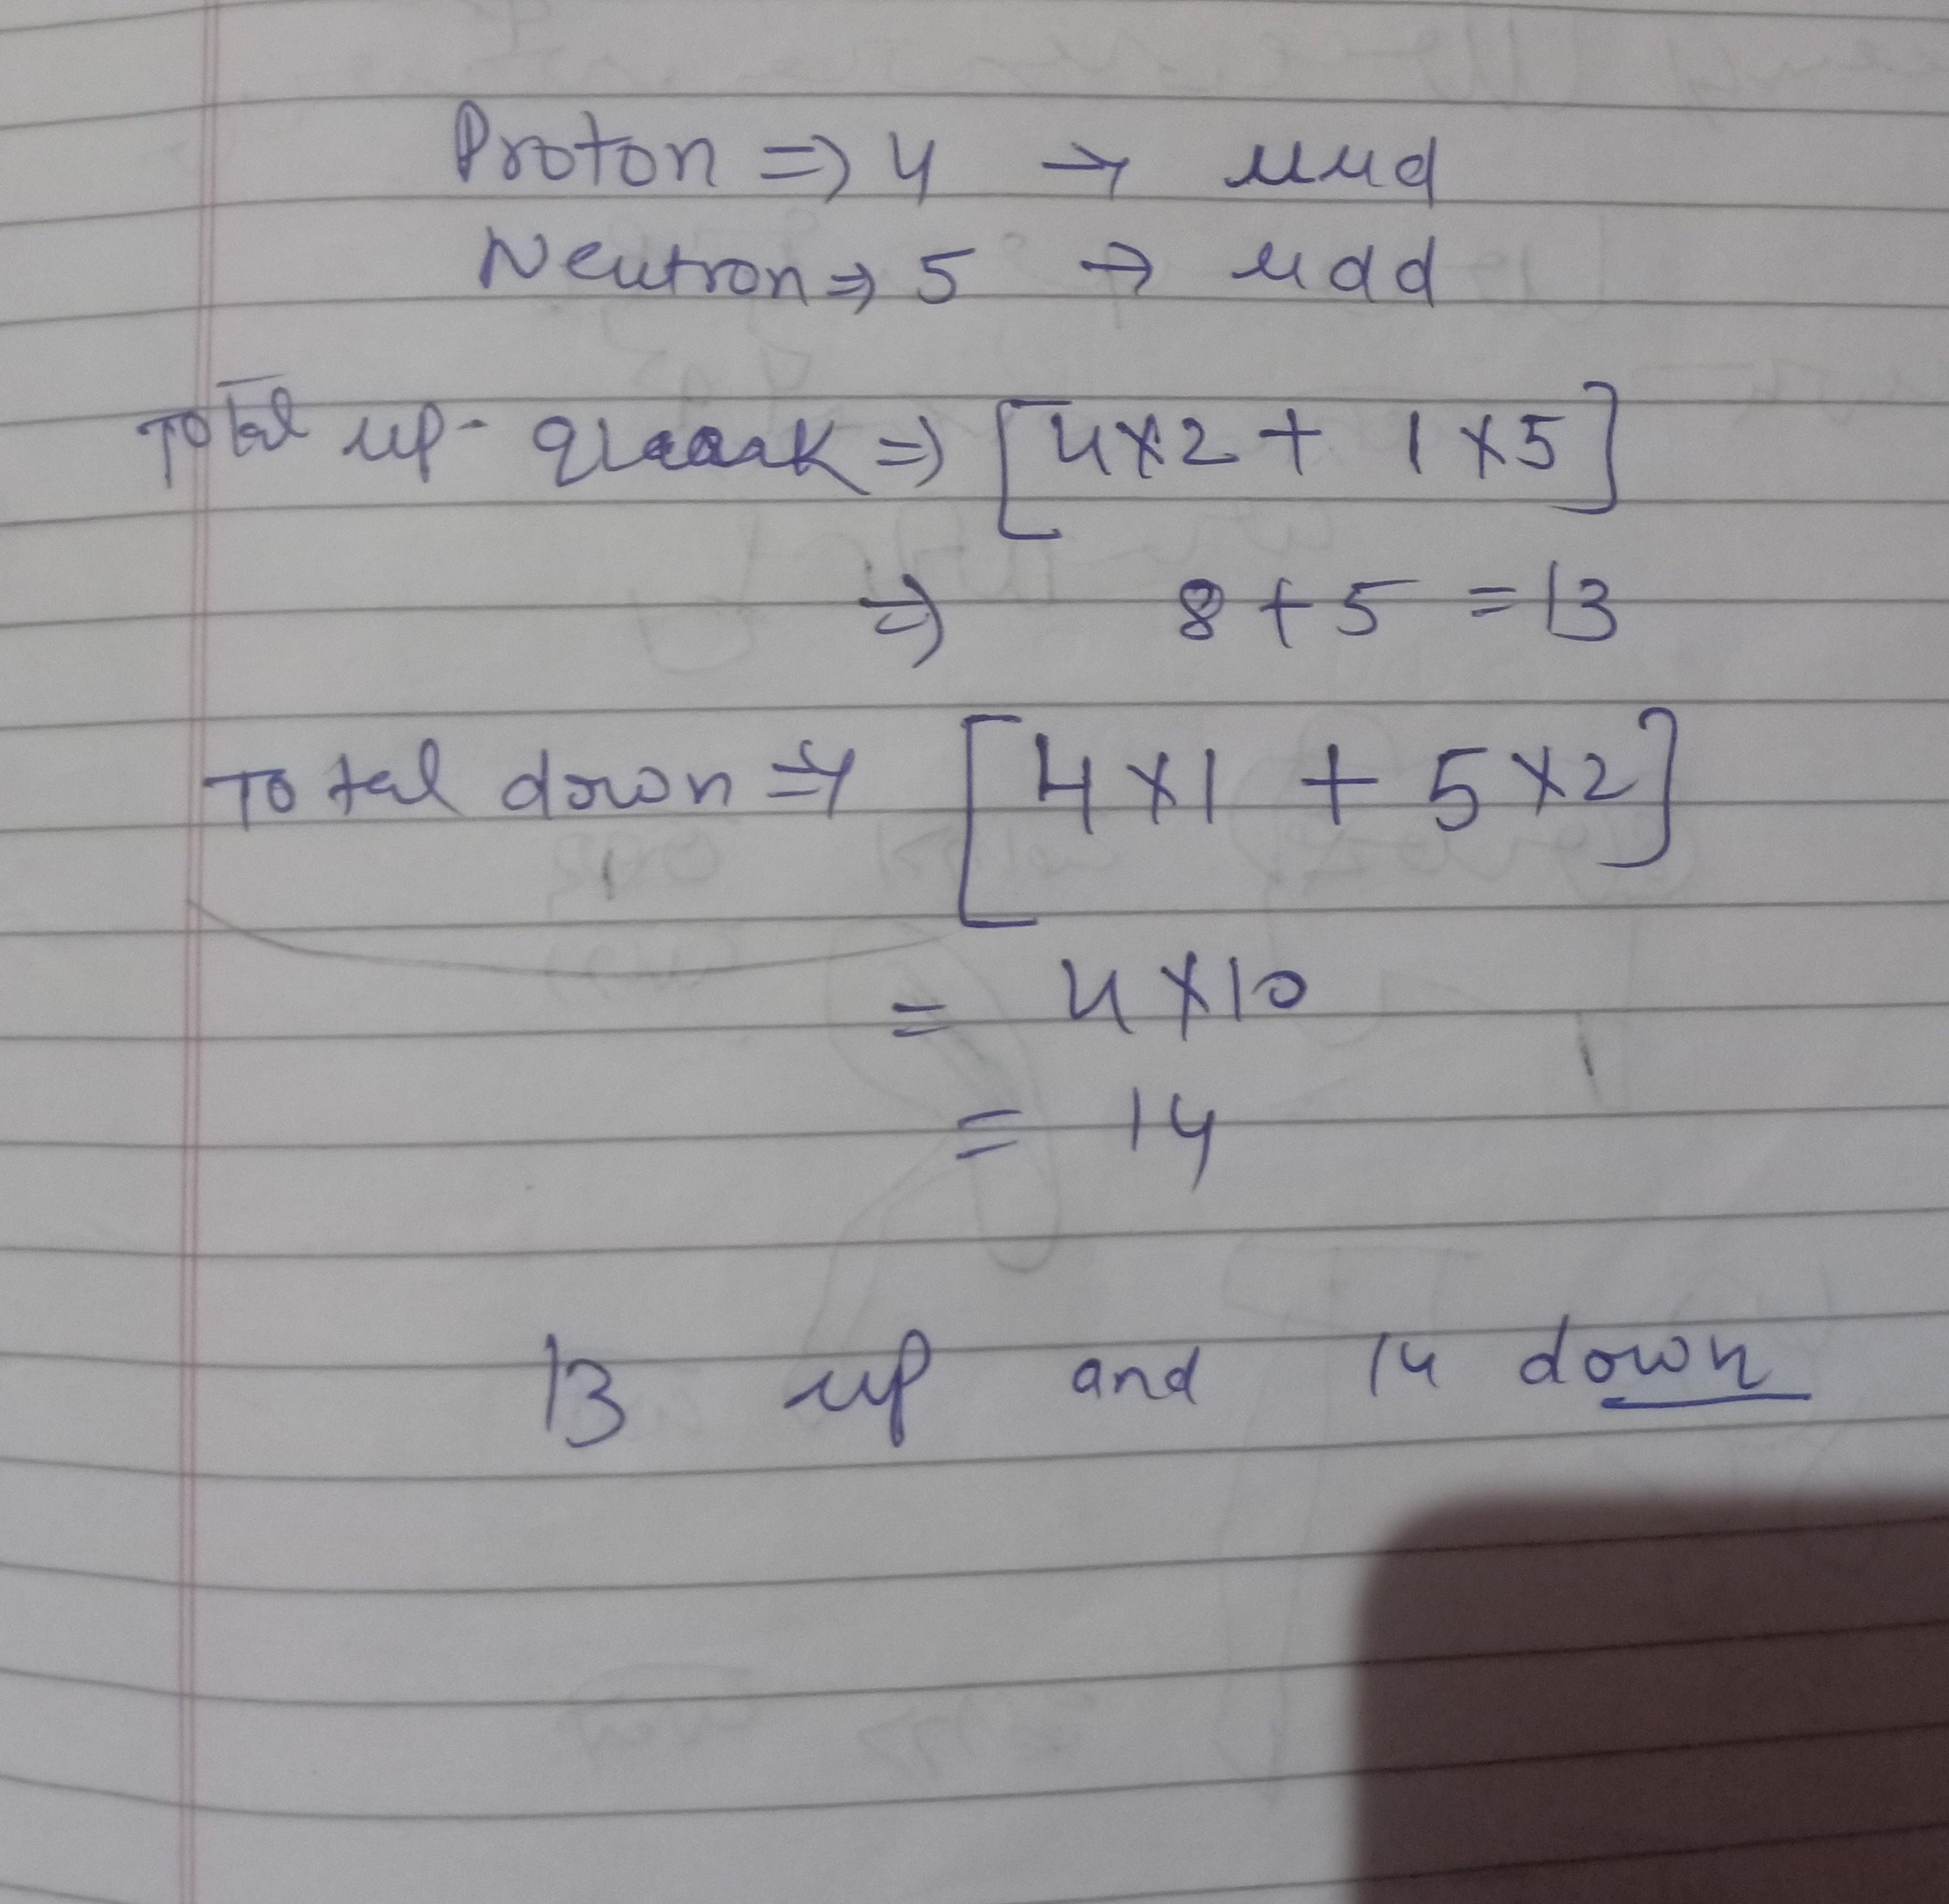 Proton => 4 → uud
Neutron => 5 → udd
Total up- quark => [4×2 + 1×5]
=> 8+5 = 13
Total down => [4×1 + 5×2]
= 4×10
= 14
13 up and 14 down